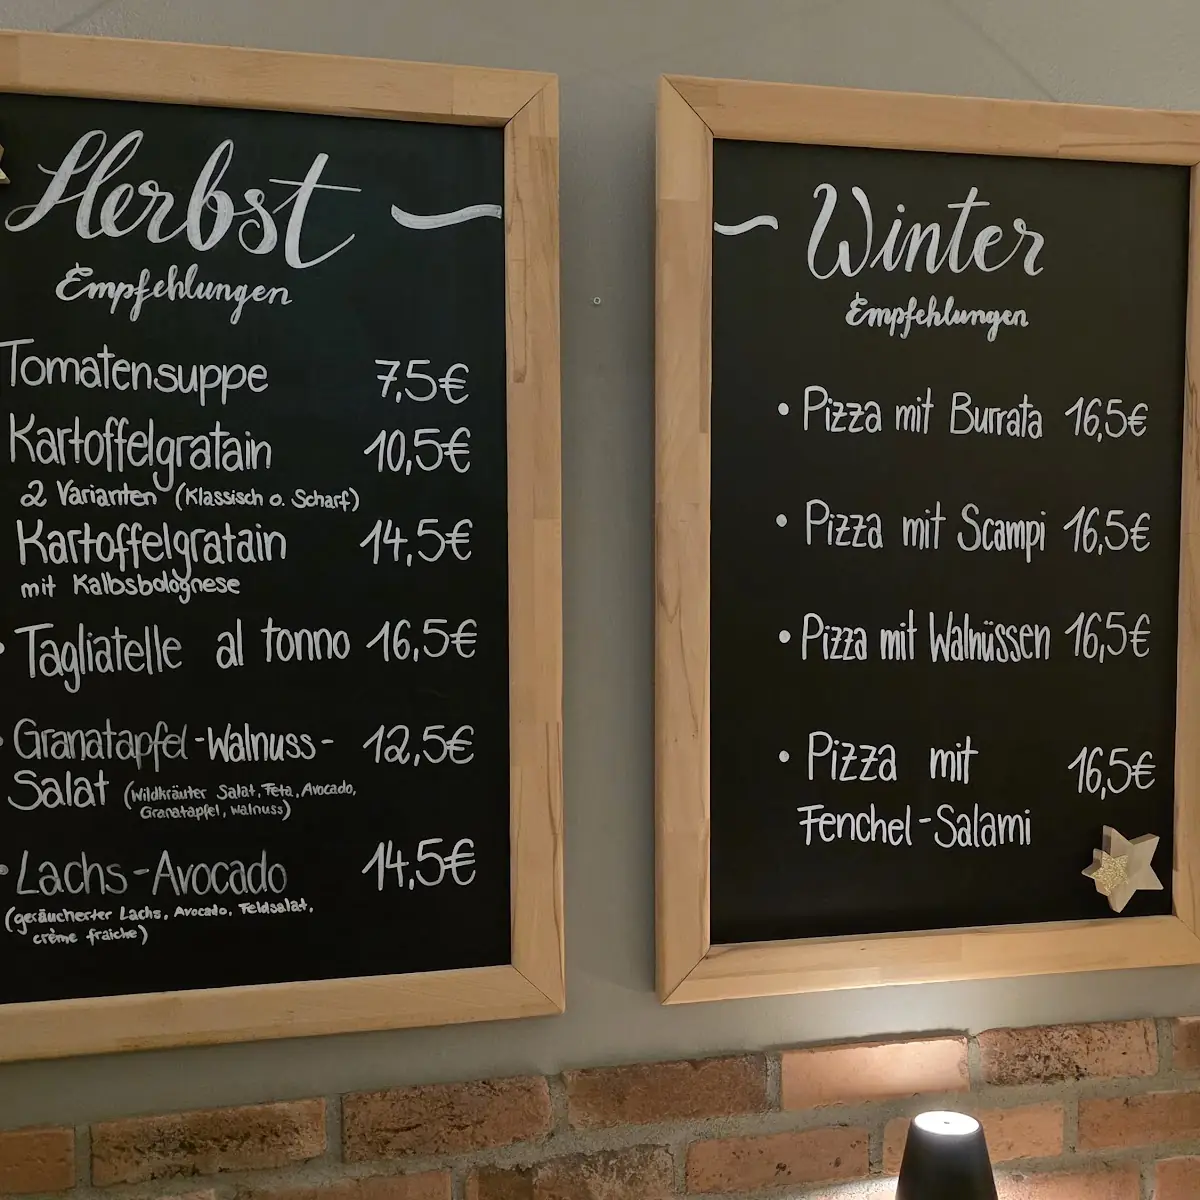 Herbst
Empfehlungen
Tomatensuppe 7,5€
Kartoffelgratain 10,5€
2 Varianten (Klassisch o. Scharf)
Kartoffelgratain 14,5€
mit Kalbsbolognese
• Tagliatelle al tonno 16,5€
• Granatapfel-Walnuss- 12,5€
Salat (Wildkräuter Salat, Feta, Avocado,
Granatapfel, Walnuss)
• Lachs-Avocado 14,5€
(geräucherter Lachs, Avocado, Feldsalat,
crème fraiche)
Winter
Empfehlungen
• Pizza mit Burrata 16,5€
• Pizza mit Scampi 16,5€
• Pizza mit Walnüssen 16,5€
• Pizza mit 16,5€
Fenchel-Salami